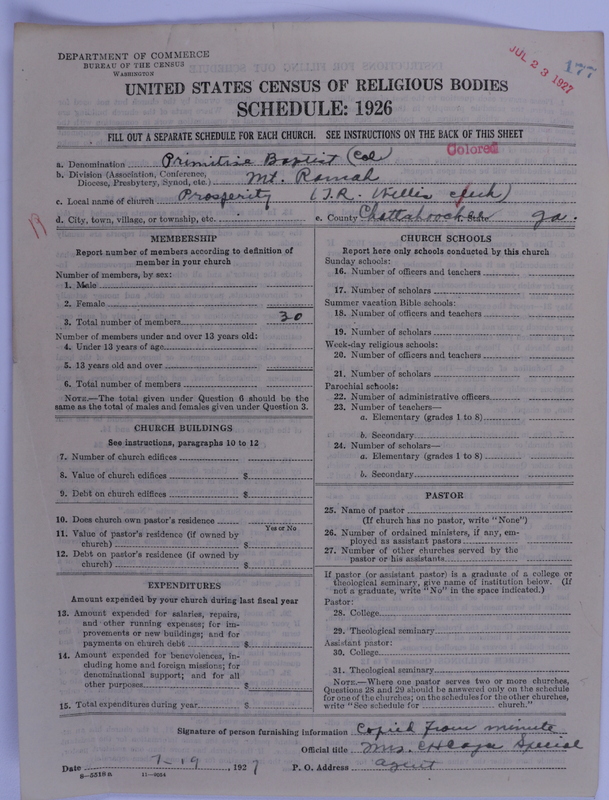 DEPARTMENT OF COMMERCE
BUREAU OF THE CENSUS
WASHINGTON
JUL 23 1927
177
UNITED STATES CENSUS OF RELIGIOUS BODIES
SCHEDULE: 1926
FILL OUT A SEPARATE SCHEDULE FOR EACH CHURCH. SEE INSTRUCTIONS ON THE BACK OF THIS SHEET
Colored
a. Denomination Primitive Baptist (Col)
b. Division (Association, Conference, Diocese, Presbytery, Synod, etc.) Mt. Ramah
c. Local name of church Prosperity (J.R. Willis)
d. City, town, village, or township, etc.
e. County Chattahoochee Ga.
MEMBERSHIP
Report number of members according to definition of
member in your church
Number of members, by sex:
1. Male
2. Female
3. Total number of members 30
Number of members under and over 13 years old:
4. Under 13 years of age
5. 13 years old and over
6. Total number of members
NOTE.—The total given under Question 6 should be
same as the total of males and females given under Question 3.
CHURCH BUILDINGS
See instructions, paragraphs 10 to 12
7. Number of church edifices
8. Value of church edifices $
9. Debt on church edifices $
10. Does church own pastor's residence
Yes or No
11. Value of pastor's residence (if owned by
church) $
12. Debt on pastor's residence (if owned by
church) $
EXPENDITURES
Amount expended by your church during last fiscal year
13. Amount expended for salaries, repairs,
and other running expenses; for im-
provements or new buildings; and for
payments on church debt $
14. Amount expended for benevolences, in-
cluding home and foreign missions; for
denominational support; and for all
other purposes $
15. Total expenditures during year $
CHURCH SCHOOLS
Report here only schools conducted by this church
Sunday schools:
16. Number of officers and teachers
17. Number of scholars
Summer vacation Bible schools:
18. Number of officers and teachers
19. Number of scholars
Week-day religious schools:
20. Number of officers and teachers
21. Number of scholars
Parochial schools:
22. Number of administrative officers
23. Number of teachers—
a. Elementary (grades 1 to 8)
b. Secondary
24. Number of scholars—
a. Elementary (grades 1 to 8)
b. Secondary
PASTOR
25. Name of pastor
(If church has no pastor, write "None")
26. Number of ordained ministers, if any, em-
ployed as assistant pastors
27. Number of other churches served by the
pastor or his assistants
If pastor (or assistant pastor) is a graduate of a college or
theological seminary, give name of institution below. (If
not a graduate, write "No" in the space indicated.)
Pastor:
28. College
29. Theological seminary
Assistant pastor:
30. College
31. Theological seminary
NOTE.—Where one pastor serves two or more churches,
Questions 28 and 29 should be answered only on the schedule
for one of the churches; on the schedules for the other churches,
write "See schedule for church."
Signature of person furnishing information Copied from minute
Official title Mrs. Special
Date 7-19, 1927 P. O. Address agent
8-5516 a 11-9054